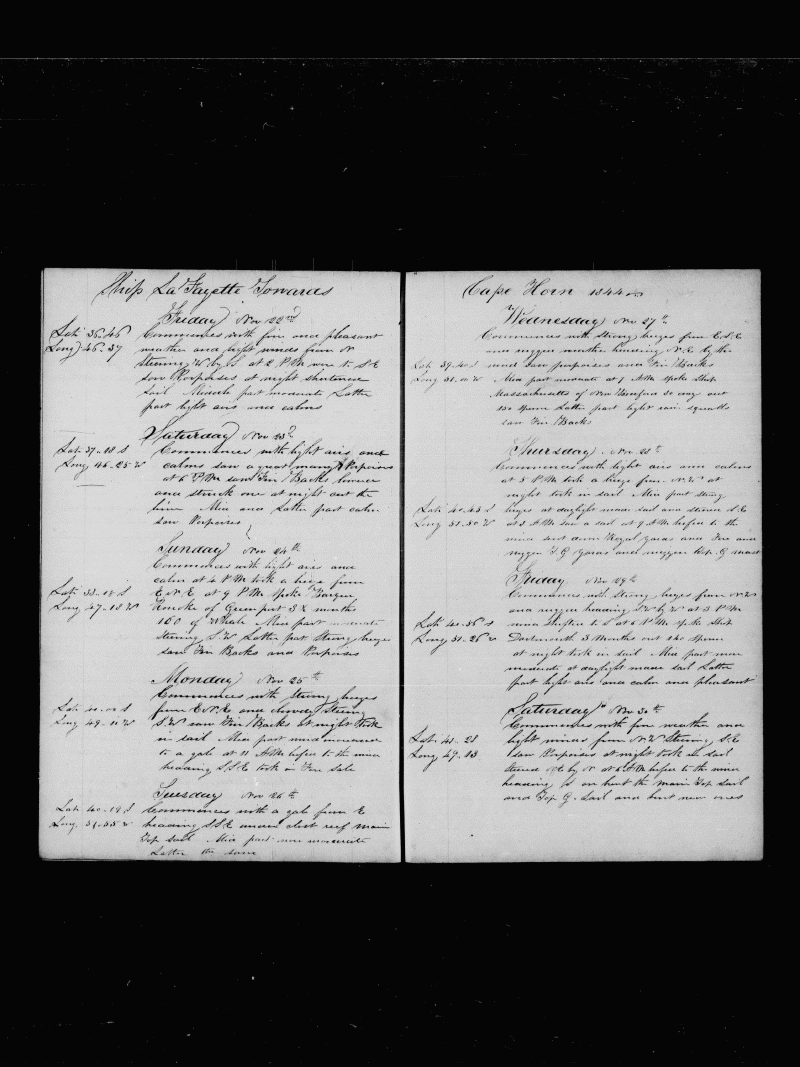 Ship La Fayette Towards
Friday Nov 22nd
Lati 36.46
Long 46.37
Commences with fine and pleasant
weather and light winds from N
Steering W by S. at 2 P.M wore to S.E
saw Porpoises at night shortened
sail Middle part moderate Latter
part light airs and calms
Saturday Nov 23d
Lat. 37.18 S
Long 46.25 W
Commences with light airs and
calms saw a great many Porpoises
at 6 P.M saw Fin Backs lowered
and struck one at night cut the
line Mid and Latter part calm
saw Porpoises
Sunday Nov 24th
Lati 38.14 S
Long 47.18 W
Commences with light airs and
calm at 4 P.M took a breeze from
E.N.E at 9 P.M spoke Barque
Roanoke of Green port 3½ months
160 of Whale Mid part moderate
steering S.W Latter part strong breeze
saw Fin Backs and Porpoises
Monday Nov 25th
Lati 40.00 S
Long 49.11 W
Commences with strong breezes
from E.N.E and cloudy steering
S.W saw Fin Backs at night took
in sail Mid part wind increased
to a gale at 11 A.M hefer to the wind
heading S.S.E took in Fore sale
Tuesday Nov 26th
Lati 40.19 S
Long. 51.35 W
Commences with a gale from E
heading S.S.E under close reef main
Top sail Mid part more moderate
Latter the same
Cape Horn 1844
Wednesday Nov 27th
Lati 39.40 S
Long 51.00 W
Commences with strong breezes from E.S.E
and rugged weather heading N.E by the
wind saw porpoises and Fin Backs
Mid part moderate at 7 A.M spoke Ship
Massachusetts of New Bedford 50 days out
130 sperm Latter part light rain squalls
saw Fin Backs
Thursday Nov 28th
Lati 40.43 S
Long 51.50 W
Commences with light airs and calms
at 5 P.M took a breeze from N.W at
night took in sail Mid part strong
breeze at daylight made sail and steered S.E
at 8 A.M saw a sail at 9 A.M hefer to the
wind sent down Royal yards and Fore and
mizzen T G yards and mizzen Top G mast
Friday Nov 29th
Lati 40.56 S
Long 51.26 W
Commences with strong breezes from N.W
and rugged heading S.W by W at 3 P.M
wind shifted to S at 6 P.M spoke Ship
Dartmouth 3 Months out 140 sperm
at night took in sail Mid part more
moderate at daylight made sail Latter
part light airs and calm and pleasant
Saturday Nov 30th
Lat. 41.28
Long 49.13
Commences with fine weather and
light winds from N.W Steering S.E
saw Porpoises at night took in sail
steered by N at 6 A.M hefer to the wind
heading S on bent the main Top sail
and Top G. Sail and bent new ones